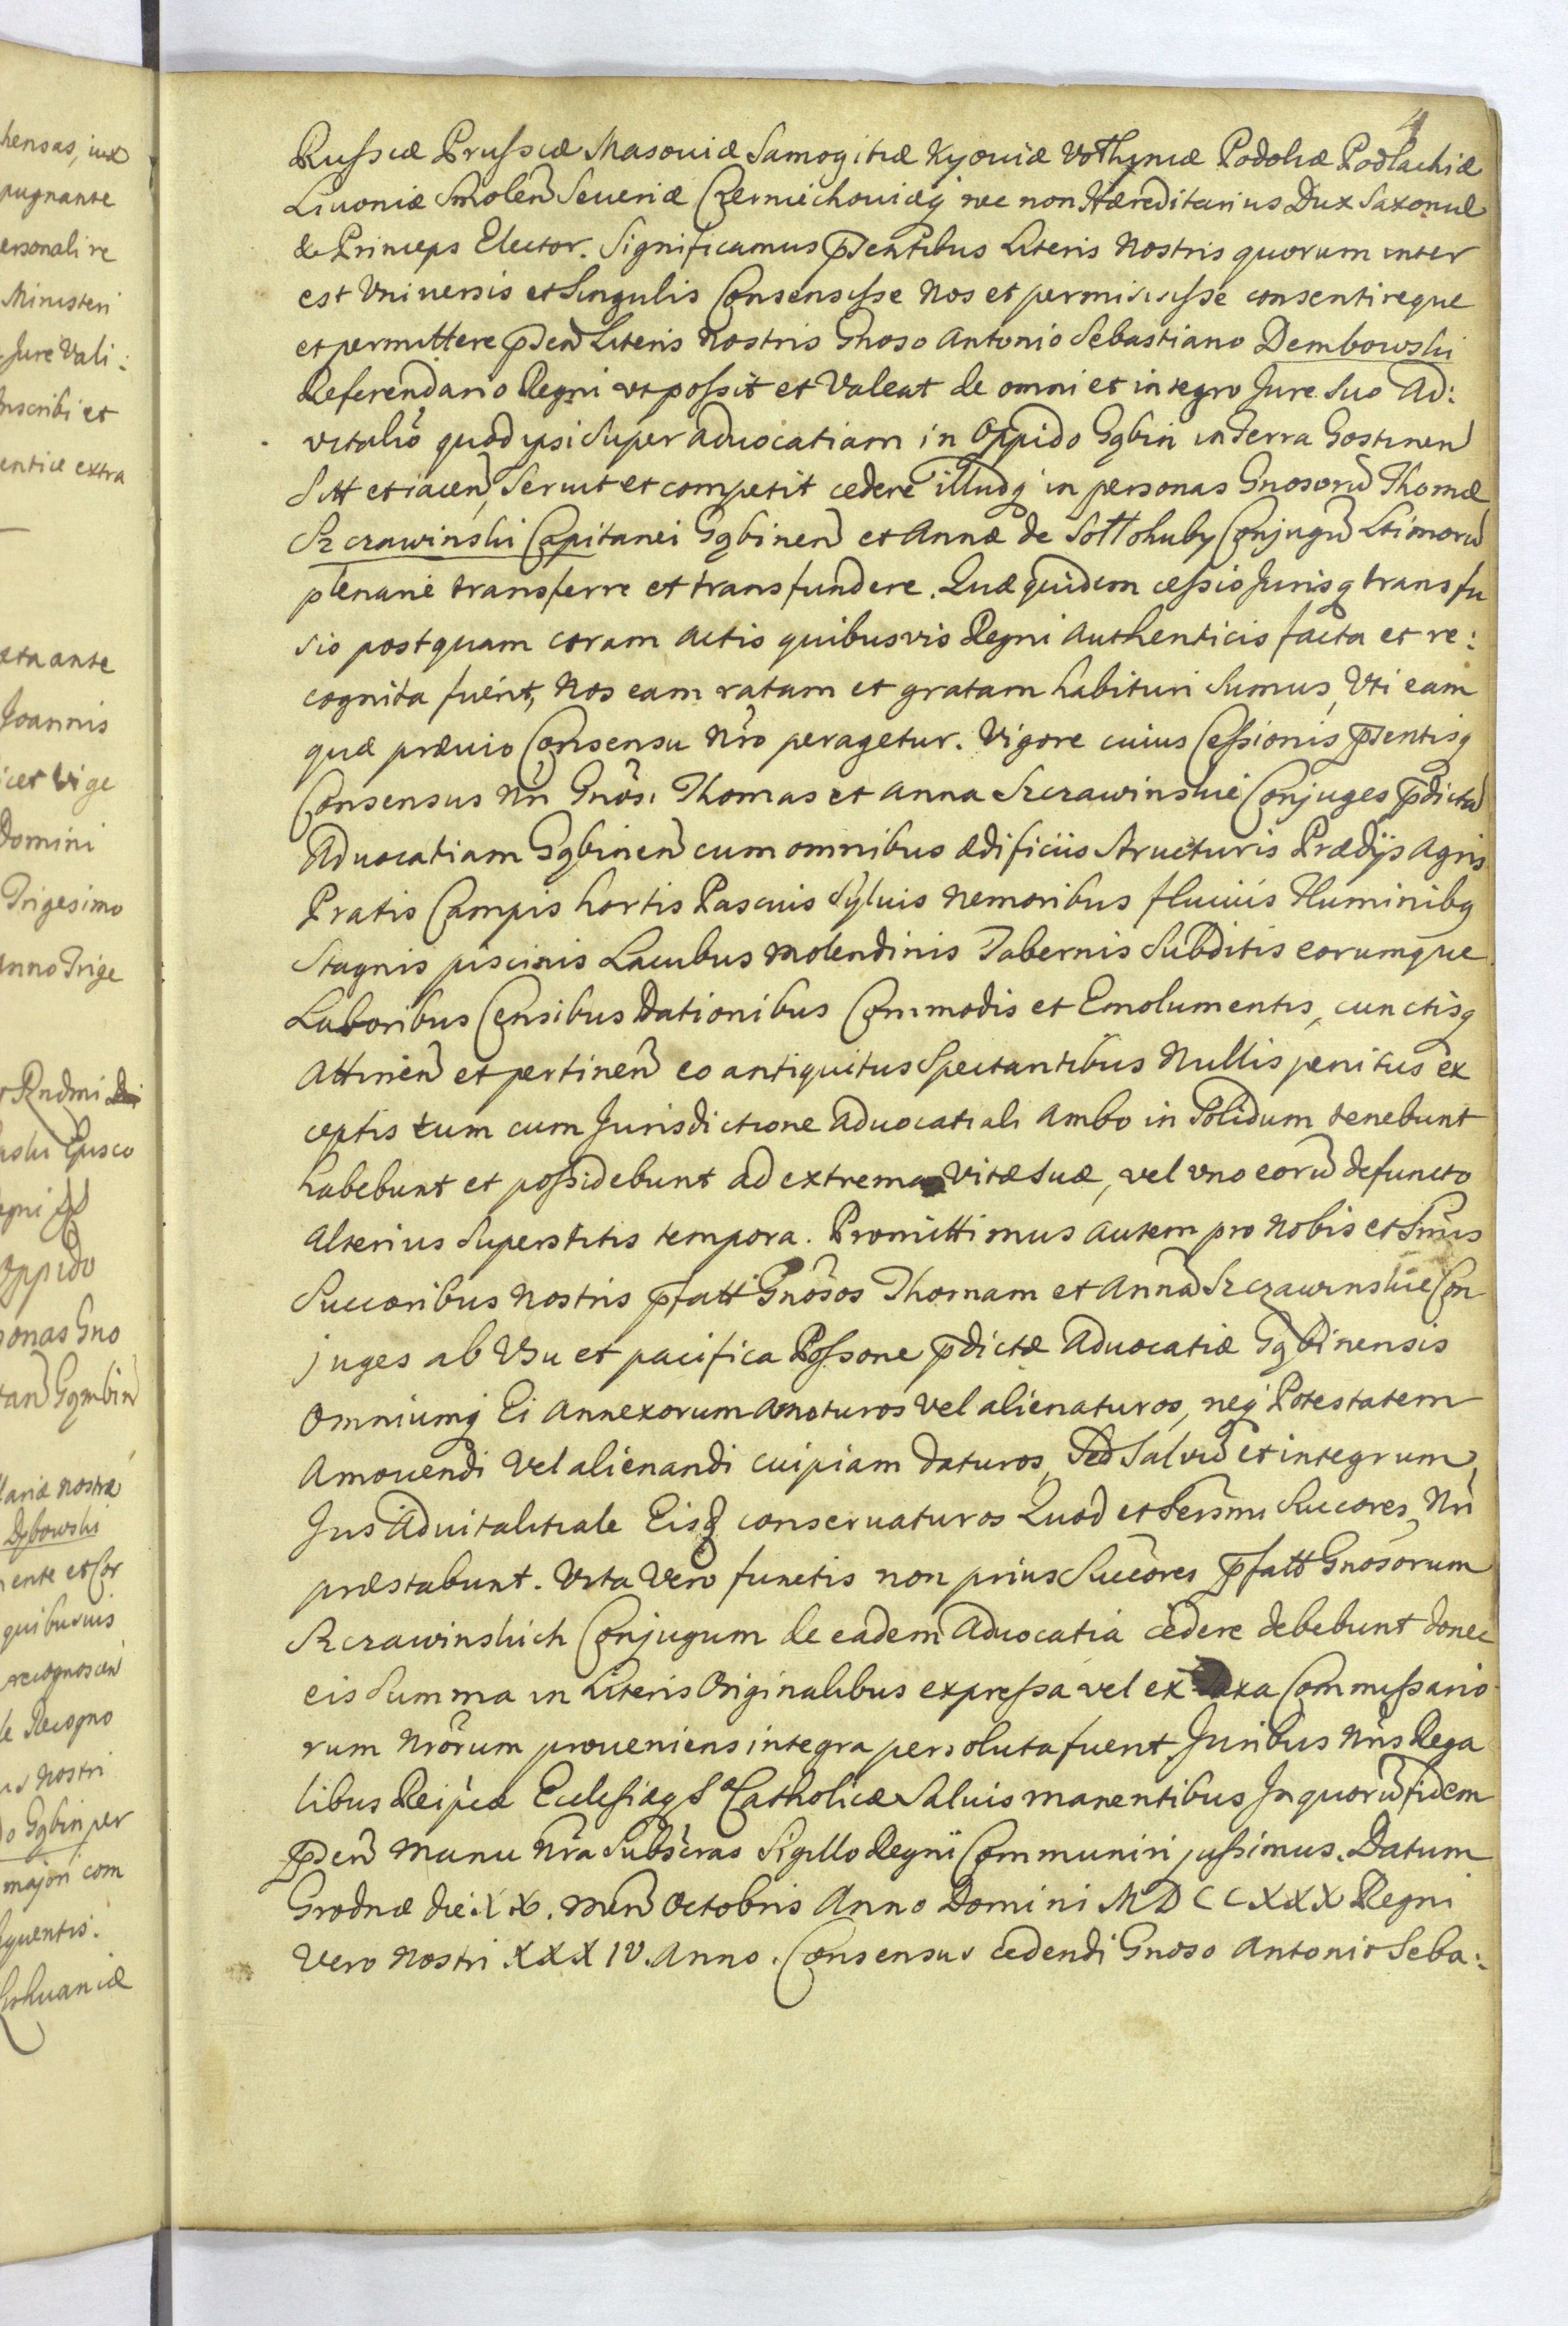 4
Russiæ Prussiæ Masouiæ Samogitiæ Kyouiæ Vołhyniæ Podoliæ Podlachiæ
Liuoniæ Smolen̄ Seueriæ Czerniechouiæq nec non Hæreditarius Dux Saxoniæ
& Princeps Elector. Significamus p̄sentibus Literis Nostris quorum inter
est Vniuersis et Singulis Consensisse Nos et permisisse consentireque
et permittere p̄sen̄ Literis Nostris Gnoso Antonio Sebastiano Dembowski
Referendario Regni vt possit et Valeat de omni et integro Jure Suo Ad:
vitalio quod ipsi Super Aduocatiam in Oppido Gąbin in Terra Gostinen̄
Sitt et iacen̄, Seruit et competit cedere illudq in personas Gnosorū Thomæ
Szczawinski Capitanei Gąbinen̄ et Annæ de Sołłohuby Conjugū Ltimorū
plenarie transferre et transfundere. Quæ quidem cessio Jurisq transfu
sio postquam coram Actis quibusvis Regni Authenticis facta et re:
cognita fuerit, Nos eam ratam et gratam habituri Sumus, Vti eam
quæ præuio Consensu Nro peragetur. Vigore cuius Cessionis p̄sentisq
Consensus Nri Gnosi Thomas et Anna Szczawinskie Conjuges p̄dictā
Aduocatiam Gąbinen̄ cum omnibus ædificiis Structuris Prædijs Agris
Pratis Campis hortis Pascuis Syluis Nemoribus fluuiis Fluminibq
Stagnis piscinis Lacubus Molendinis Tabernis Subditis eorumque
Laboribus Censibus Dationibus Commodis et Emolumentis, cunctisq
Attinen̄ et pertinen̄ eo antiquitus Spectantibus Nullis penitus ex
ceptis tum cum Jurisdictione Aduocatiali Ambo in Solidum tenebunt
habebunt et possidebunt ad extrema Vitæ Suæ, vel vno eorū defuncto
Alterius Superstitis tempora. Promittimus autem pro Nobis et Srnis
Succoribus Nostris p̄fatt Gnosos Thomam et Annā Szczawinskie Con
juges ab Vsu et pacifica Possone p̄dictæ Aduocatiæ Gąbinensis
Omniumq Ei Annexorum Amoturos Vel alienaturos, neq Potestatem
Amouendi Vel alienandi cuipiam daturos, Sed Salvū et integrum
Jus Aduitalitiale Eisq conseruaturos Quod et Sersmi Succores Nri
præstabunt. Vita Vero functis non prius Succores p̄fatt Gnosorum
Szczawinskich Conjugum de eadem Aduocatia cedere debebunt donec
eis Summa in Literis Originalibus expressa vel ex Taxa Commissario
rum Nrorum proueniens integra persoluta fuerit Juribus Nris Rega
libus Reipcæ Ecclesiæq S Catholicæ Saluis manentibus In quorū fidem
p̄sen̄ Manu Nra Subscras Sigillo Regni Communiri jussimus. Datum
Grodnæ die XX. Men̄ Octobris Anno Domini MDCCXXX Regni
Vero Nostri XXXIV. Anno. Consensus cedendi Gnoso Antonio Seba: